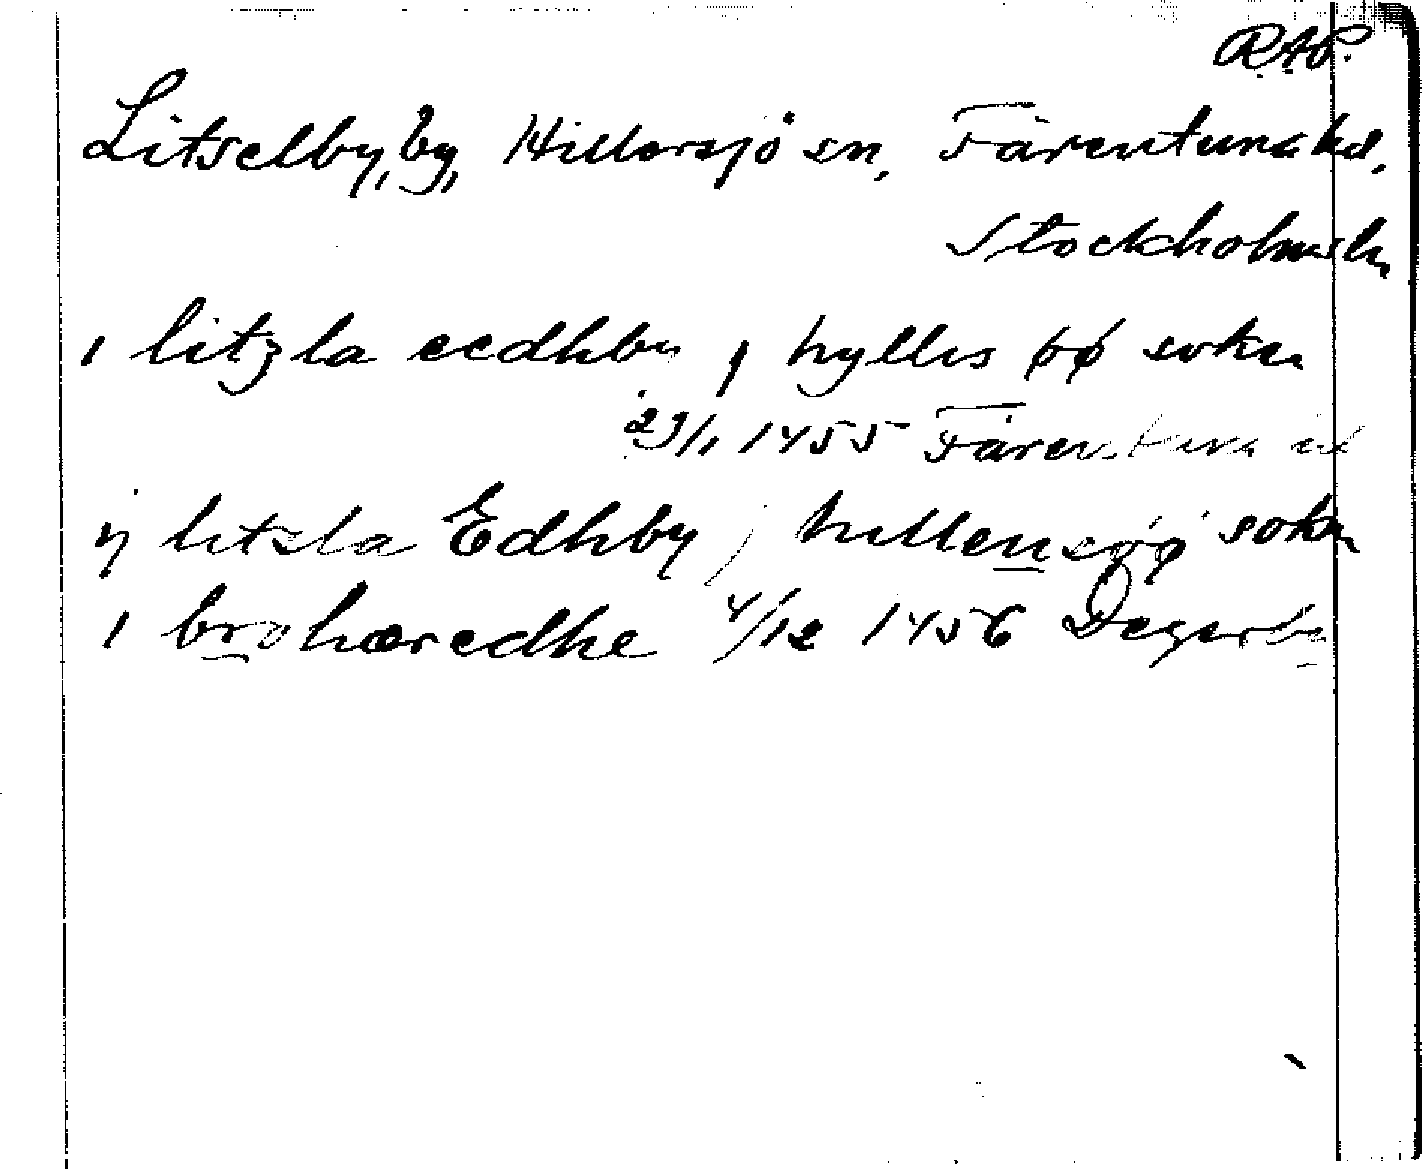 R.A.P.
Litselby, by, Hillersjö sn, Färentuna hd.
Stockholms l.
i litzla eedhby j hyllis øø soken
29/1 1455 Färentuna
ij litzla Edhby j hillensøø soken
i brohæredhe 4/12 1456 Degerby